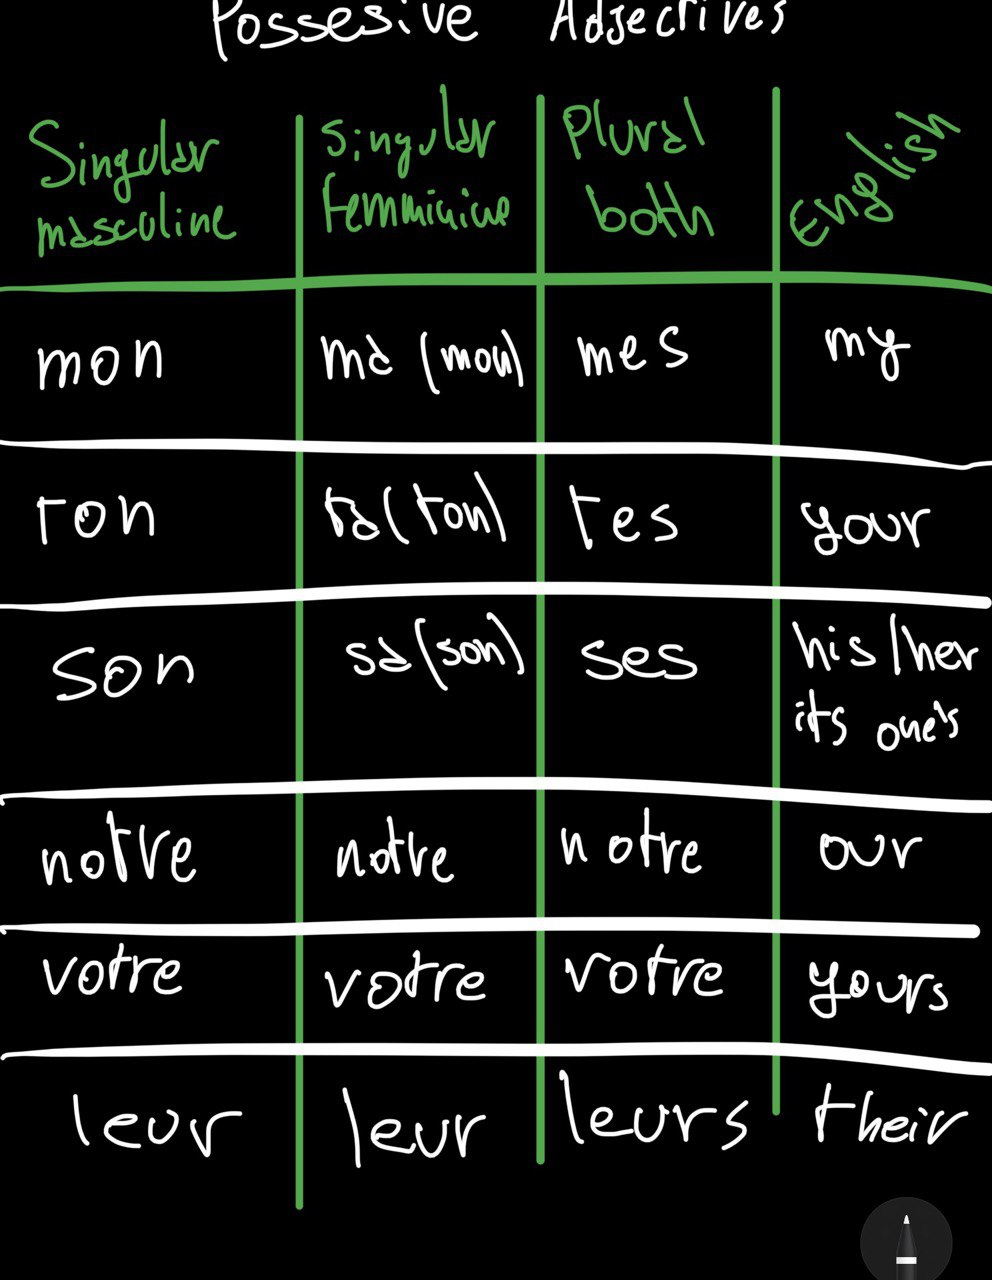 Possesive Adjectives
Singular masculine | singular femminine | Plural both | English
mon | ma (mon) | mes | my
ton | ta (ton) | tes | your
son | sa (son) | ses | his/her its one's
notre | notre | notre | our
votre | votre | votre | yours
leur | leur | leurs | their